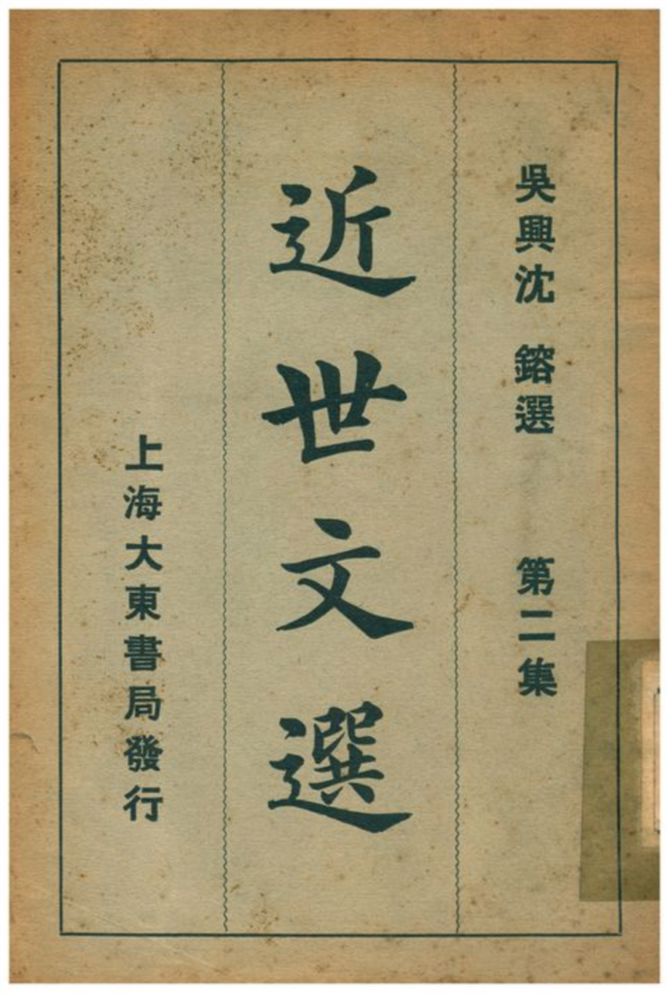 吳興沈 鎔選 第二集
近世文選
上海大東書局發行